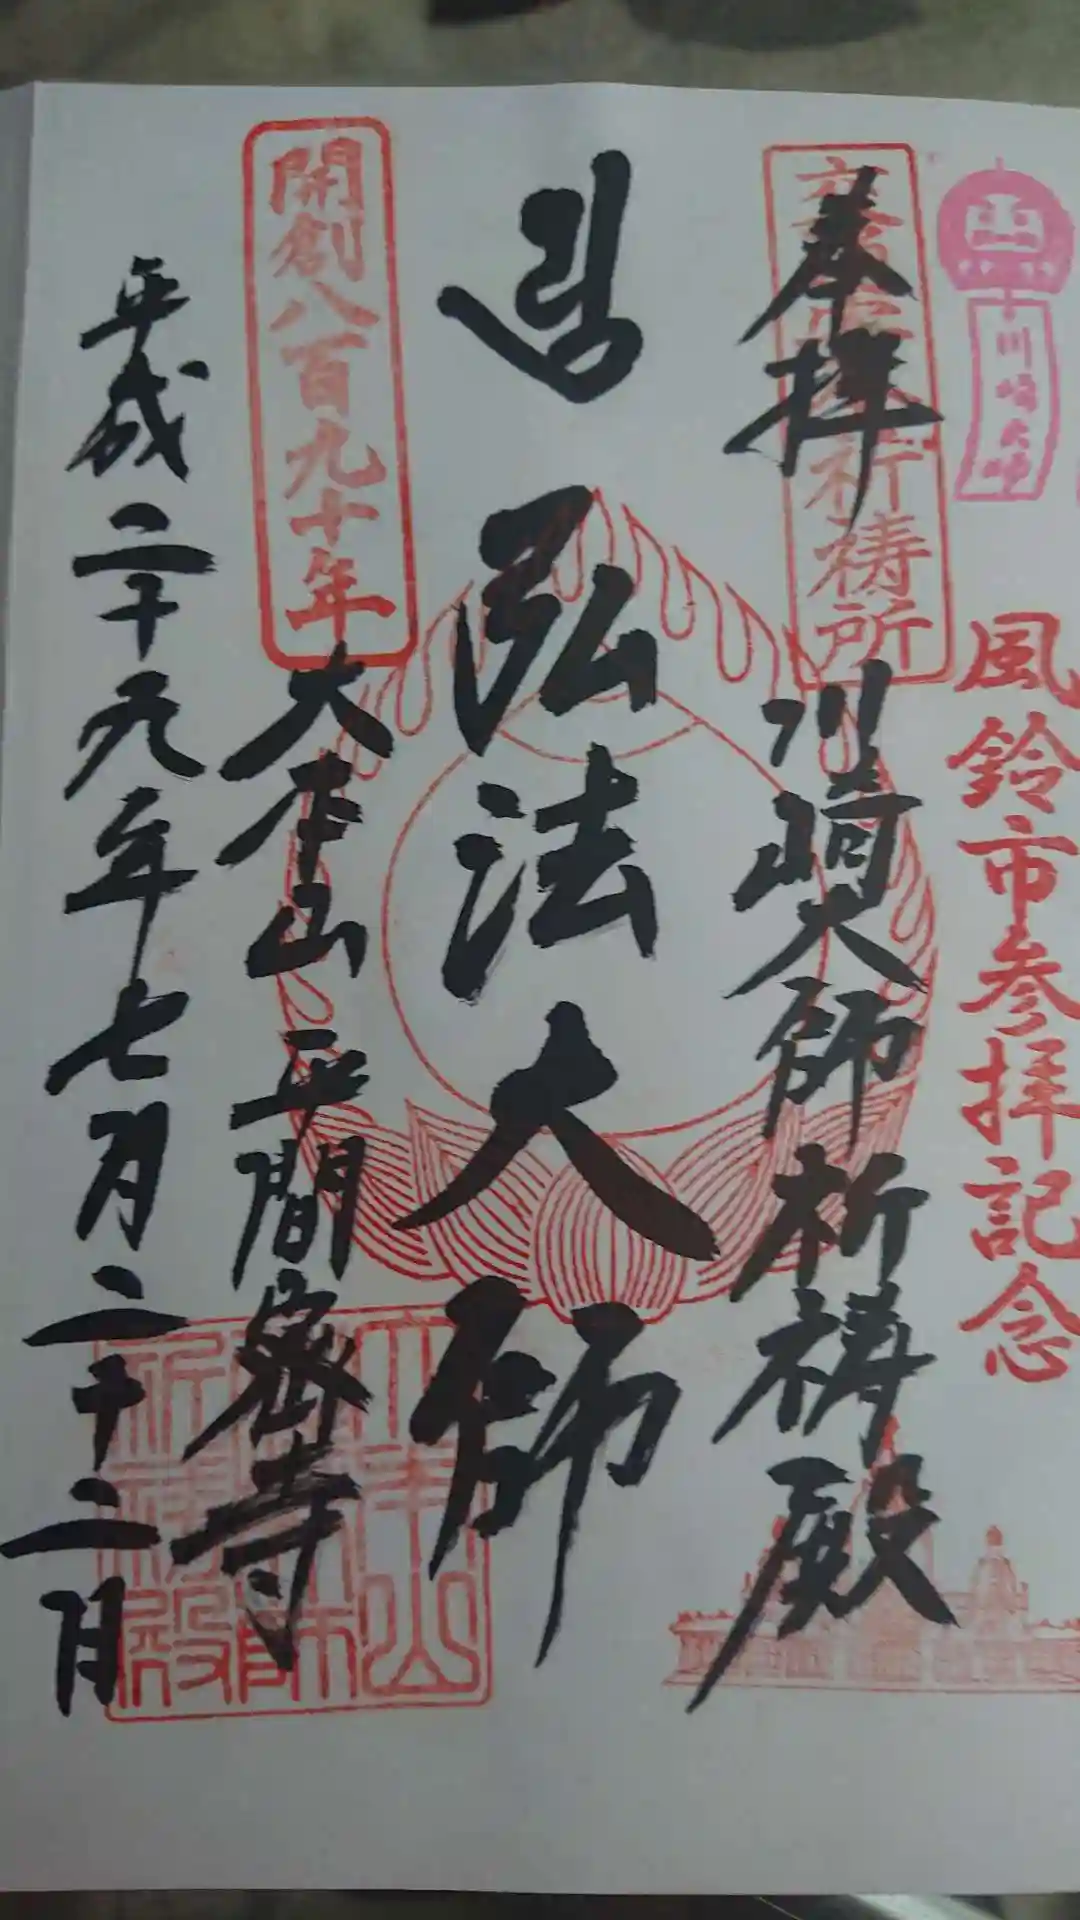 川崎大師
風鈴市参拝記念
交通安全祈祷所
奉拝
川崎大師祈祷殿
弘法大師
開創八百九十年
大本山 平間寺
平成二十九年七月二十二日
大本山
祈祷殿